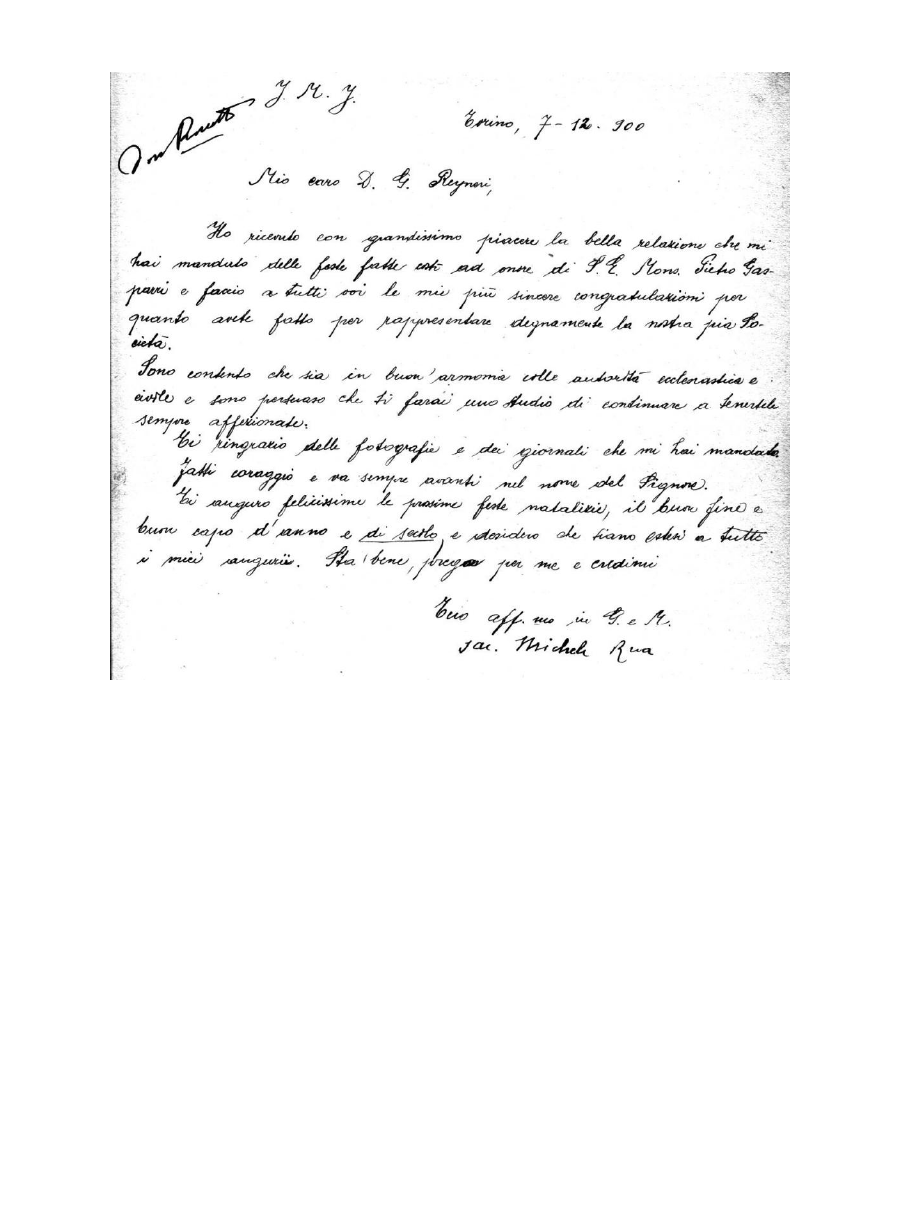 J. M. J.
Don
Torino, 7-12-900
Mio caro D. G. Reyneri,
Ho ricevuto con grandissimo piacere la bella relazione che mi
hai mandato delle feste fatte costì ad onore di S. E. Mons. Pietro Gas-
parri e faccio a tutti voi le mie più sincere congratulazioni per
quanto avete fatto per rappresentare degnamente la nostra pia So-
cietà.
Sono contento che sia in buon'armonia colle autorità ecclesiastica e
civile e sono persuaso che ti farai uno studio di continuare a tenertele
sempre affezionate.
Ti ringrazio delle fotografie e dei giornali che mi hai mandato.
Fatti coraggio e va sempre avanti nel nome del Signore.
Ti auguro felicissime le prossime feste natalizie, il buon fine e
buon capo d'anno e di secolo, e desidero che siano estesi a tutti
i miei augurii. Sta bene, prega per me e credimi
Tuo aff.mo in G. e M.
sac. Michele Rua